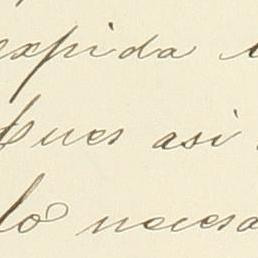 expida
Pues asi
lo necesa